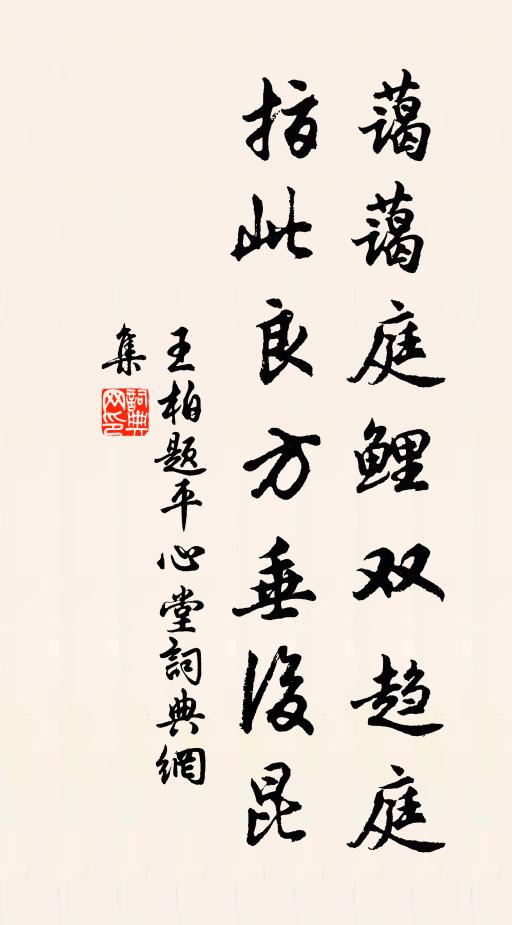 藹藹庭鲤双趋庭
指此良方垂後昆
王柏题平心堂詞典網
集
詞典
网印